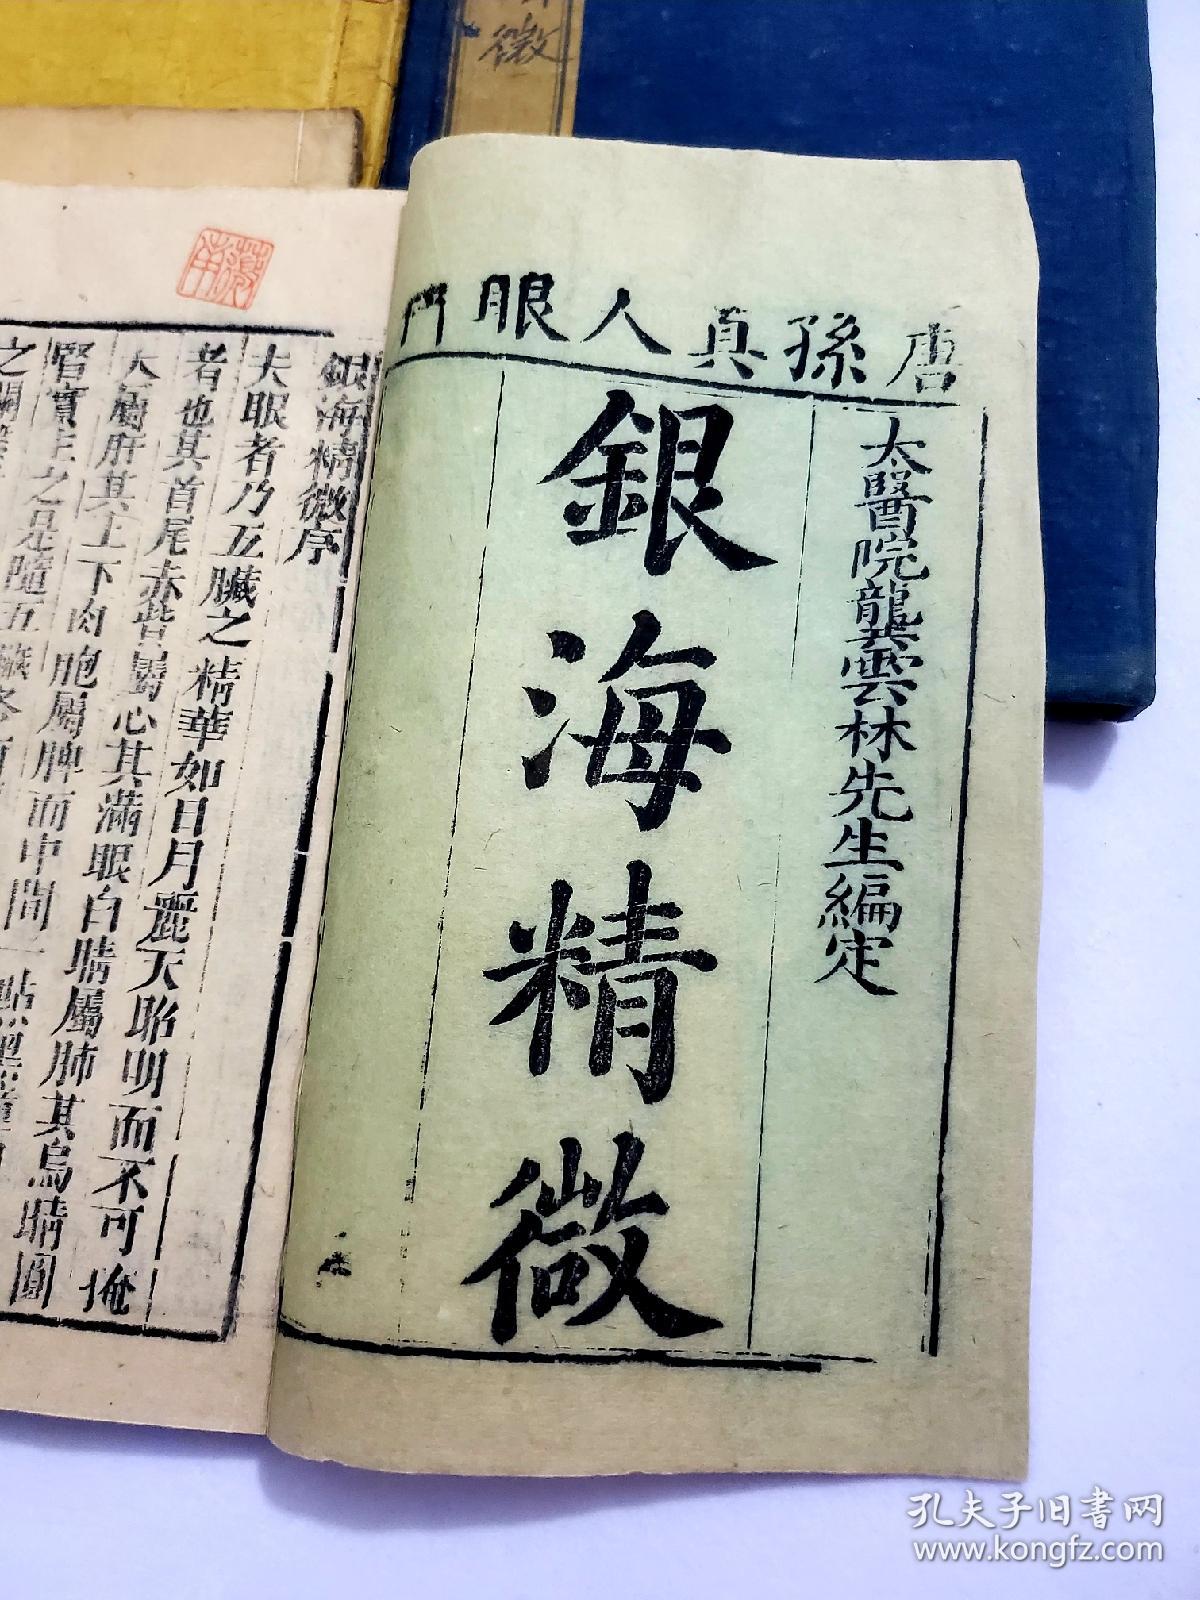 微
唐孫真人眼門
太醫院龔雲林先生編定
銀海精微
銀海精微序
夫眼者乃五臟之精華如日月麗天昭明而不可掩
者也其首尾赤眥屬心其滿眼白睛屬肺其烏睛圓
大屬肝其上下肉胞屬脾而中間一點黑瞳
腎實主之是隨五臟各有
之
孔夫子旧书网
www.kongfz.com